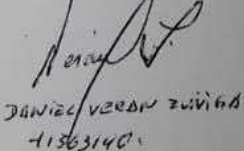 DANIEL VERAN ZUÑIGA
41363140.